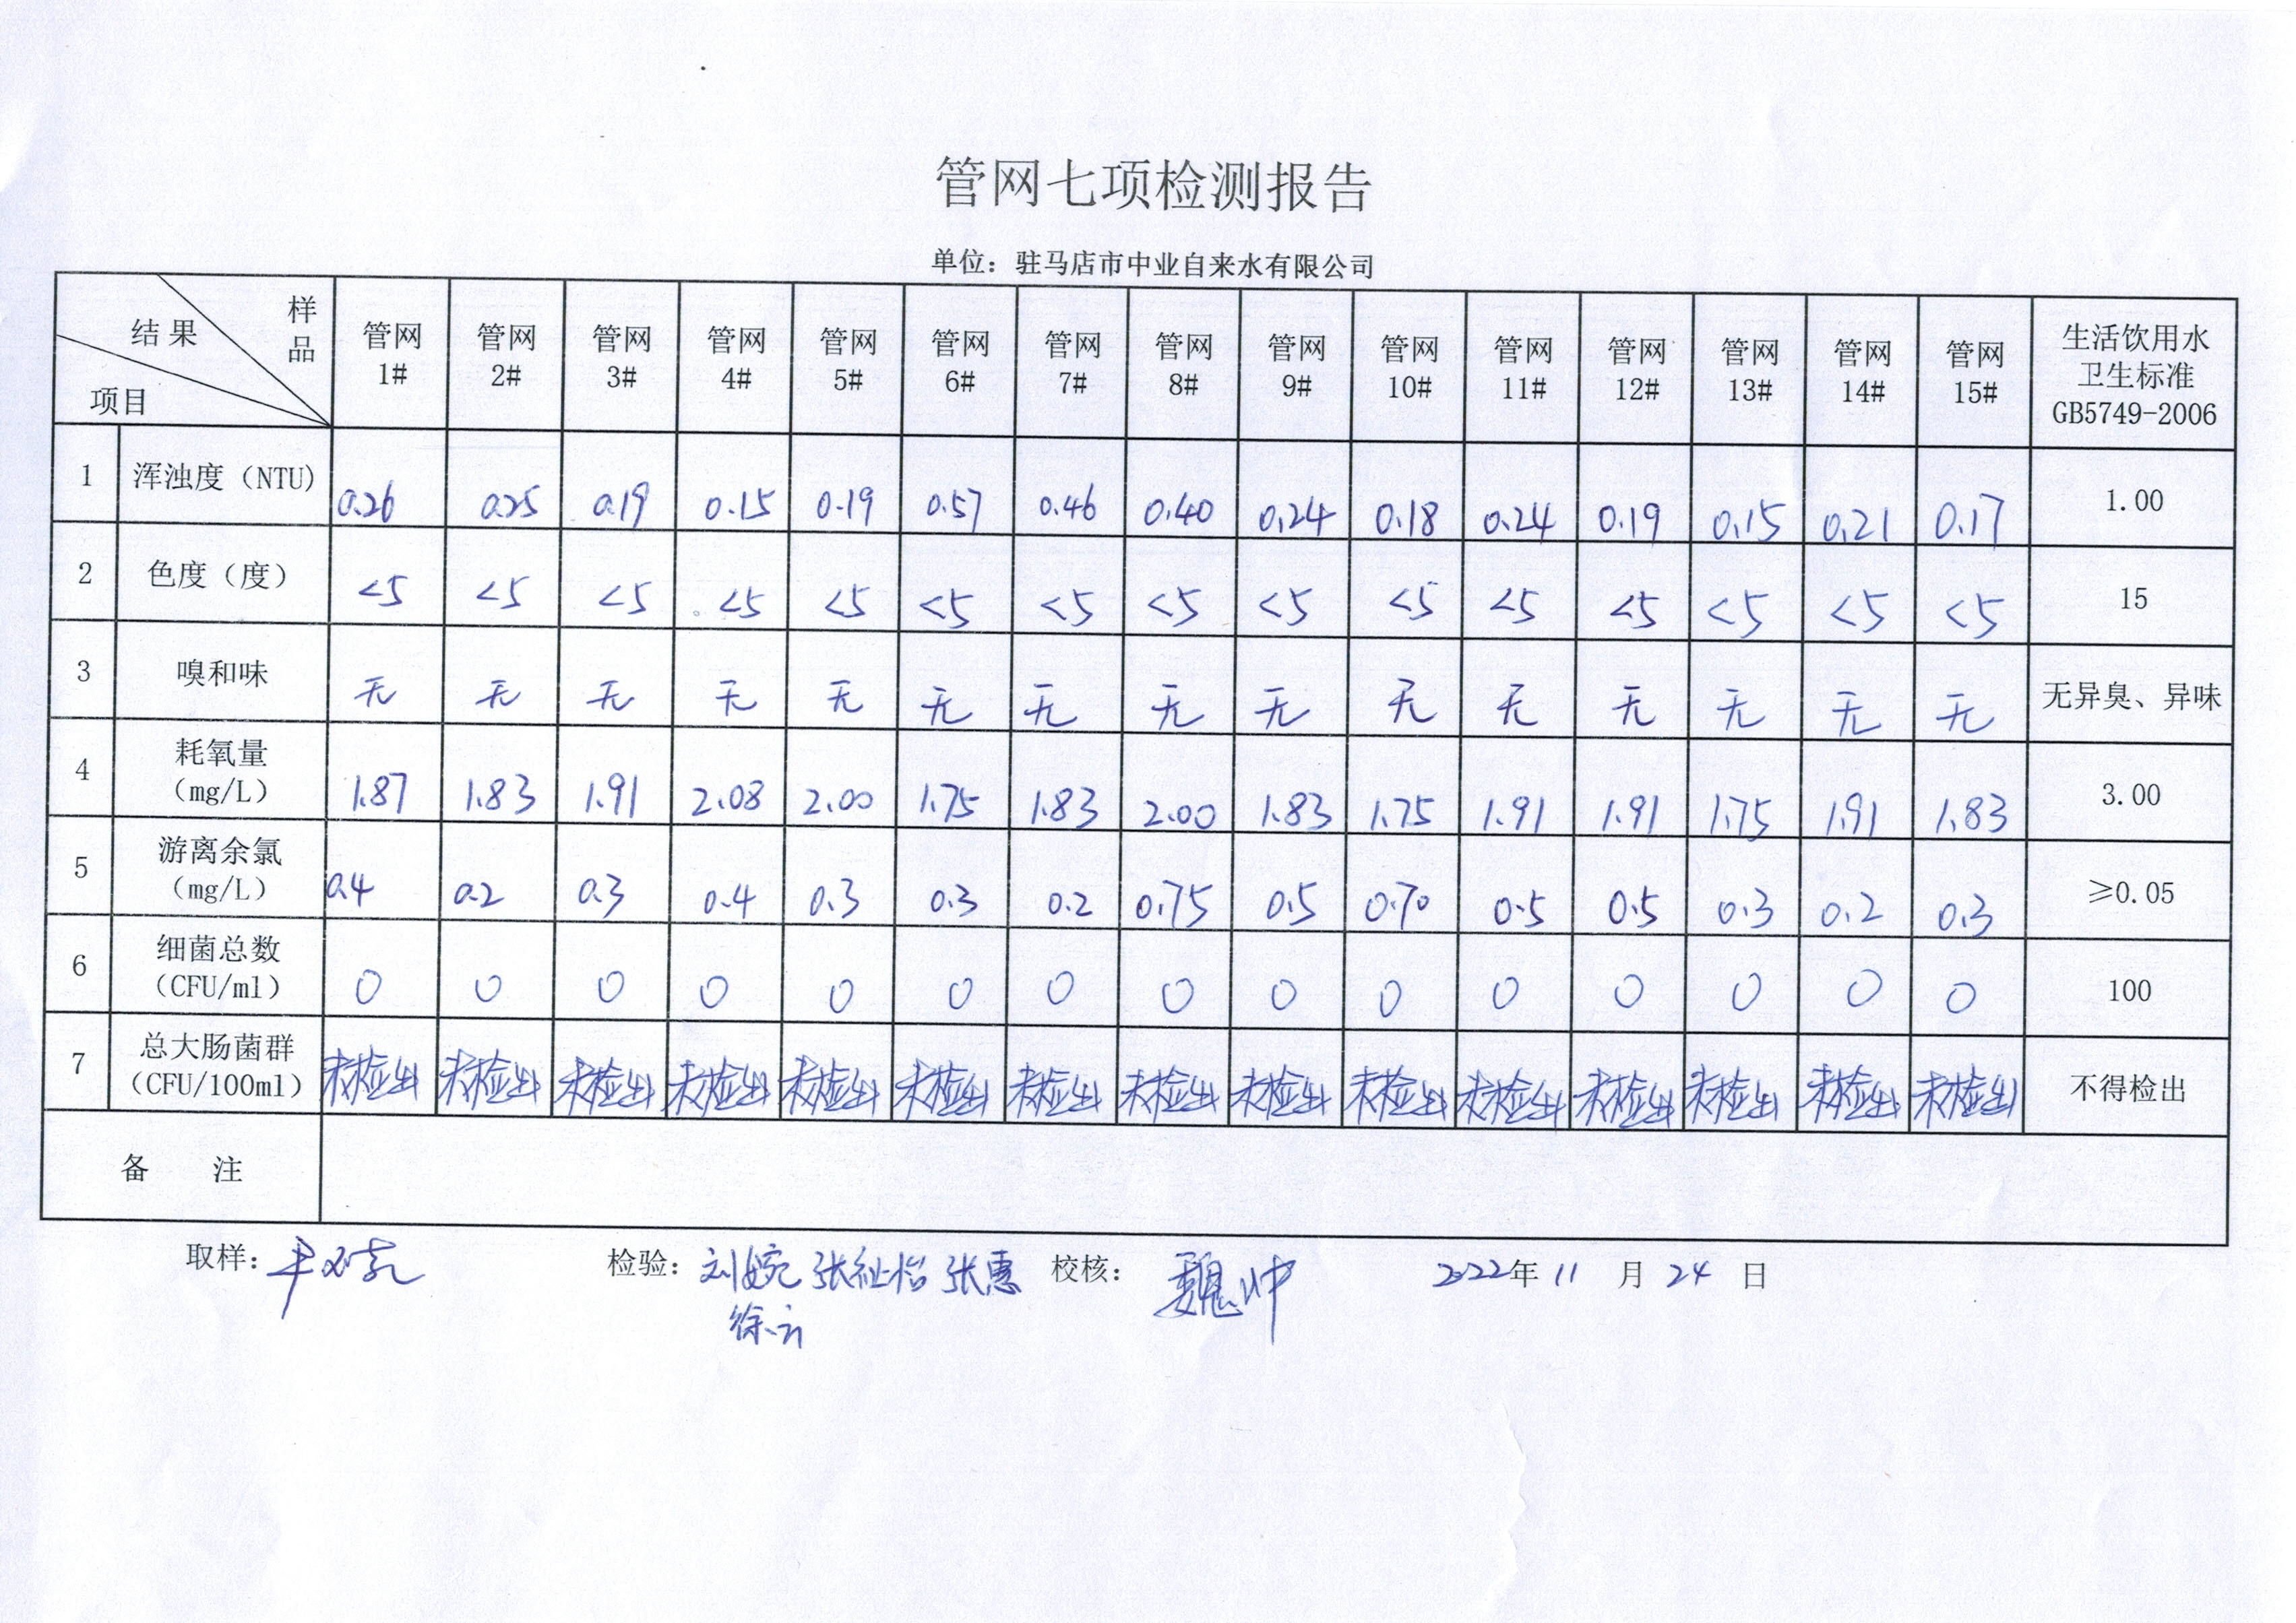 管网七项检测报告
单位：驻马店市中业自来水有限公司
结果 样品 项目 管网1# 管网2# 管网3# 管网4# 管网5# 管网6# 管网7# 管网8# 管网9# 管网10# 管网11# 管网12# 管网13# 管网14# 管网15# 生活饮用水卫生标准GB5749-2006
1 浑浊度（NTU） 0.26 0.25 0.19 0.15 0.19 0.57 0.46 0.40 0.24 0.18 0.24 0.19 0.15 0.21 0.17 1.00
2 色度（度） <5 <5 <5 <5 <5 <5 <5 <5 <5 <5 <5 <5 <5 <5 <5 15
3 嗅和味 无 无 无 无 无 无 无 无 无 无 无 无 无 无 无 无异臭、异味
4 耗氧量（mg/L） 1.87 1.83 1.91 2.08 2.00 1.75 1.83 2.00 1.83 1.75 1.91 1.91 1.75 1.91 1.83 3.00
5 游离余氯（mg/L） 0.4 0.2 0.3 0.4 0.3 0.3 0.2 0.75 0.5 0.70 0.5 0.5 0.3 0.2 0.3 ≥0.05
6 细菌总数（CFU/ml） 0 0 0 0 0 0 0 0 0 0 0 0 0 0 0 100
7 总大肠菌群（CFU/100ml） 未检出 未检出 未检出 未检出 未检出 未检出 未检出 未检出 未检出 未检出 未检出 未检出 未检出 未检出 未检出 不得检出
备 注
取样： 检验：刘婉 张祉怡 张惠 校核：魏冲 2022年 11 月 24 日
徐云